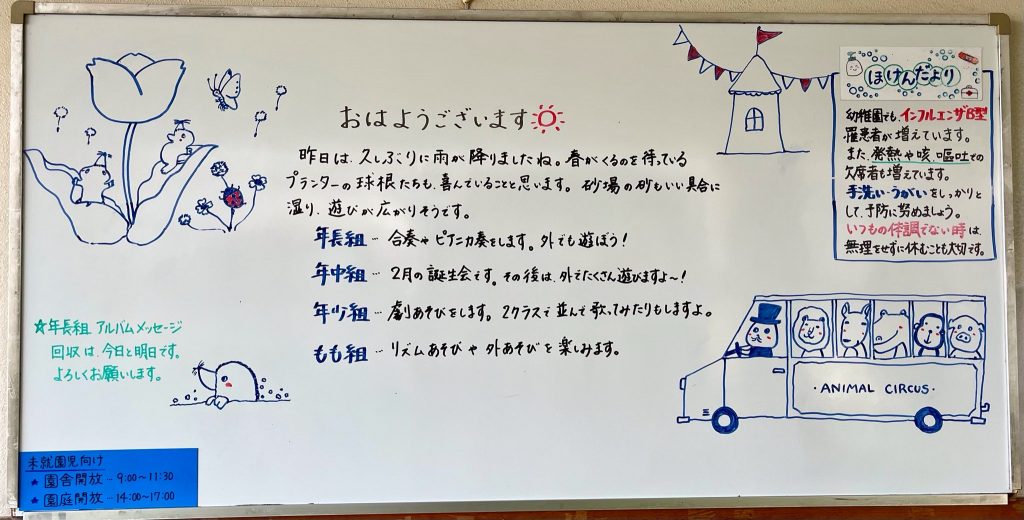 おはようございます
昨日は、久しぶりに雨が降りましたね。春がくるのを待っている
プランターの球根たちも、喜んでいることと思います。砂場の砂もいい具合に
湿り、遊びが広がりそうです。
年長組… 合奏やピアニカ奏をします。外でも遊ぼう！
年中組… 2月の誕生会です。その後は、外でたくさん遊びますよ～！
年少組… 劇あそびをします。2クラスで並んで歌ってみたりもしますよ。
もも組… リズムあそびや外あそびを楽しみます。
☆年長組 アルバムメッセージ
回収は、今日と明日です。
よろしくお願いします。
未就園児向け
★園舎開放…9:00～11:30
★園庭開放…14:00～17:00
ほけんだより
幼稚園でも、インフルエンザB型
罹患者が増えています。
また、発熱や咳、嘔吐での
欠席者も増えています。
手洗い・うがいをしっかりと
して、予防に努めましょう。
いつもの体調でない時は、
無理をせずに休むことも大切です。
・ANIMAL CIRCUS・